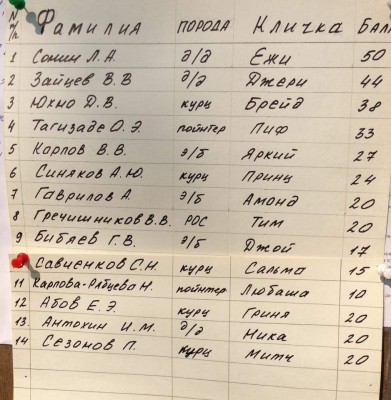 N п/п Фамилия порода Кличка Бал
1 Сонин Л.А. д/д Ежи 50
2 Зайцев В.В д/д Джери 44
3 Юхно Д.В. курц Брейд 38
4 Тагизаде О.Э. пойнтер Пиф 33
5 Карпов В.В. э/б Яркий 27
6 Синяков А.Ю. курц Принц 24
7 Гаврилов А. э/б Амонд 20
8 Гречишников В.В. РОС Тим 20
9 Бибяев Г.В. э/б Джой 17
Савченков С.Н. курц Сальма 15
11 Карпова-Рябцева Н. пойнтер Любаша 10
12 Абов Е.Э. курц Гриня 20
13. Антохин И.М. д/д Ника 20
14 Сезонов П. курц Митч 20